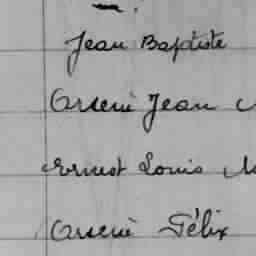 Jean Baptiste
Arsène Jean
Ernest Louis
Arsène Félix